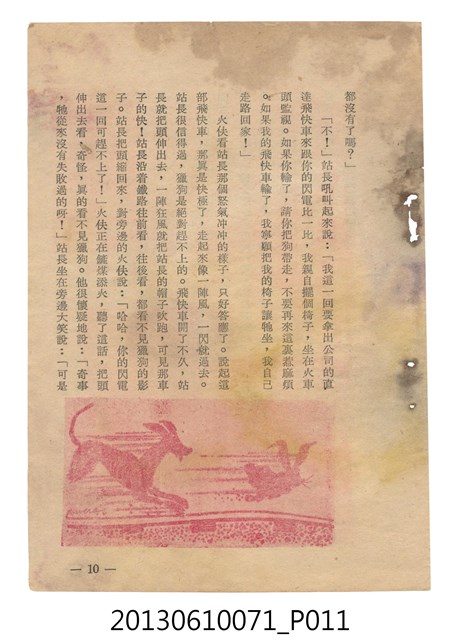 都沒有了嗎？」
「不！」站長吼叫起來說：「我這一回要拿出公司的直
達飛快車來跟你的閃電比一比，我親自擺個椅子，坐在火車
頭監視。如果你輸了，請你把狗帶走，不要再來這裏惹麻煩
。如果我的飛快車輸了，我寧願把我的椅子讓牠坐，我自己
走路回家！」
火伕看站長那個怒氣冲冲的樣子，只好答應了。說起這
部飛快車，那眞是快極了，走起來像一陣風，一閃就過去。
站長很信得過，獵狗是絕對趕不上的。飛快車開了不久，站
長就把頭伸出去，一陣狂風就把站長的帽子吹跑，可見那車
子的快！站長沿着鐵路往前看，往後看，都看不見獵狗的影
子。站長把頭縮回來，對旁邊的火伕說：「哈哈，你的閃電
這一回可趕不上了！」火伕正在鏟煤添火，聽了這話，把頭
伸出去看，奇怪，眞的看不見獵狗。他很懷疑地說：「奇事
，牠從來沒有失敗過的呀！」站長坐在旁邊大笑說：「可是
— 10 —
20130610071_P011